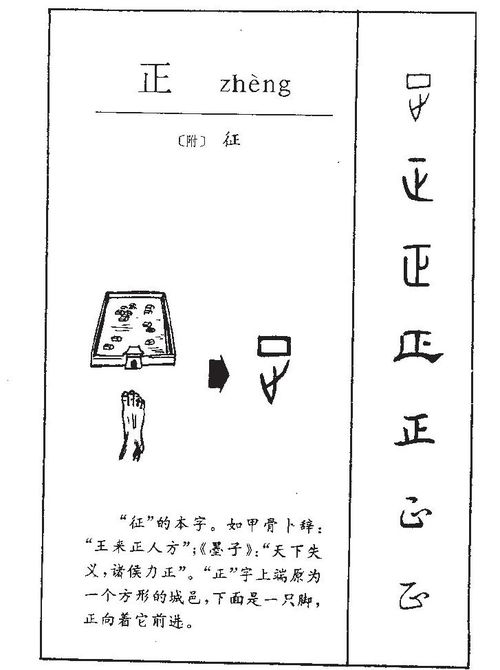 正 zhèng
〔附〕 征
“征”的本字。如甲骨卜辞:
“王来正人方”;《墨子》:“天下失
义,诸侯力正”。“正”字上端原为
一个方形的城邑,下面是一只脚,
正向着它前进。
正
正
正
正
正
正
正